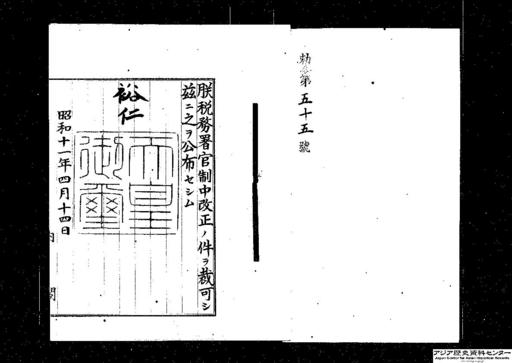 勅令第五十五號
朕税務署官制中改正ノ件ヲ裁可シ
茲ニ之ヲ公布セシム
裕仁
天皇御璽
昭和十一年四月十四日
内閣
アジア歴史資料センター
Japan Center for Asian Historical Records